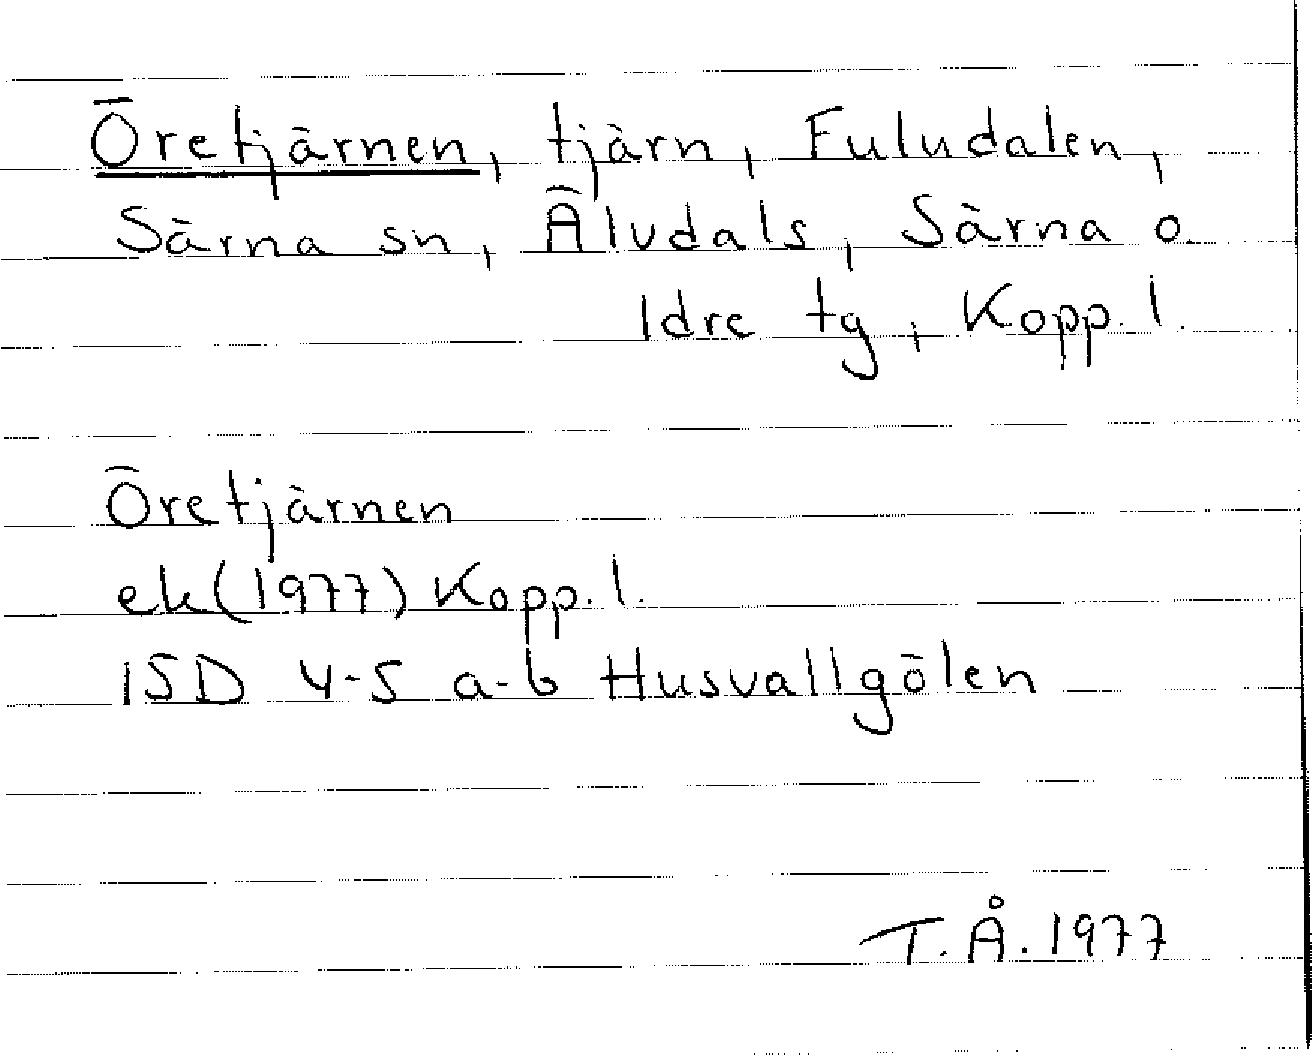 Öretjärnen, tjärn, Fuludalen,
Särna sn, Älvdals, Särna o.
Idre tg, Kopp. l.
Öretjärnen
ek (1977) Kopp. l.
15D 4-5 a-b Husvallgölen
T. Å. 1977